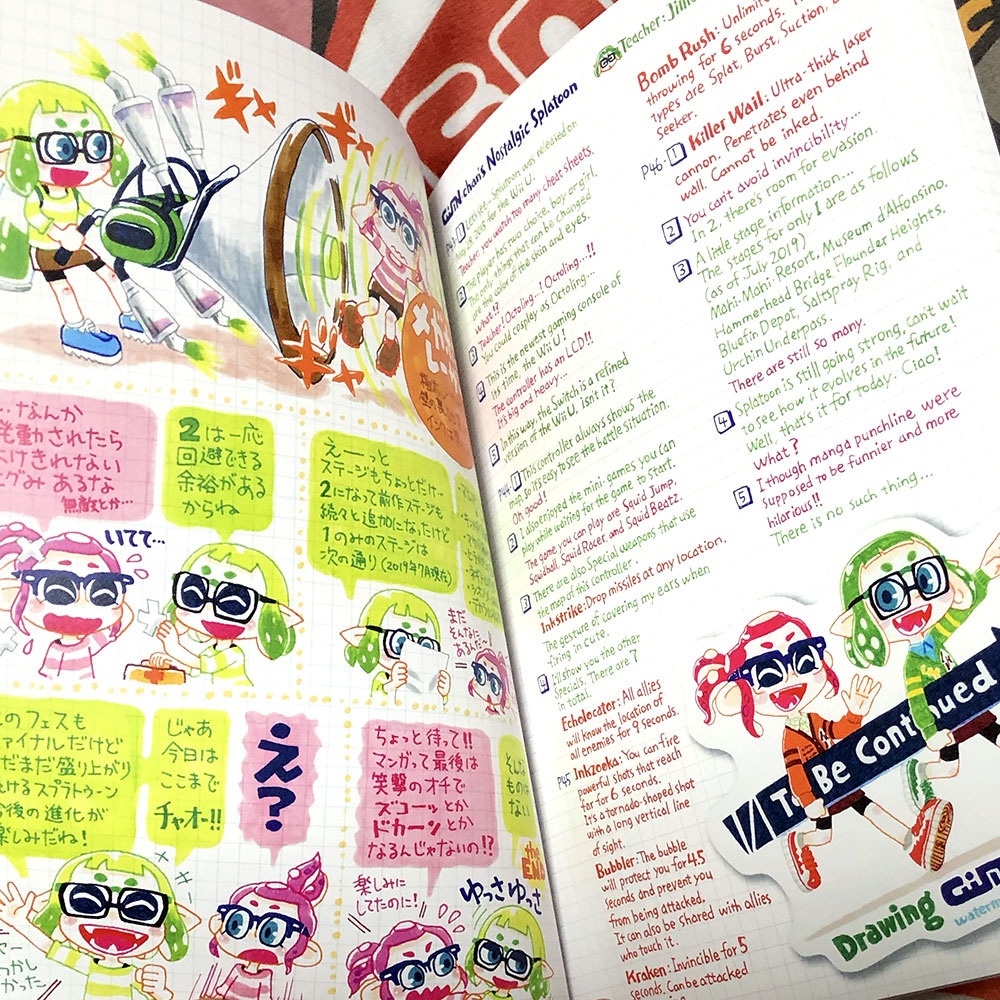 ギャ
ギャ
ギャ
…なんか
発動されたら
よけきれない
無敵とか…
2は一応
回避できる
余裕がある
からね
えーっと
ステージもちょっとだけー
2になって前作ステージも
続々と追加になったけど
1のみのステージは
次の通り(2019年7月現在)
いてて…
まだ
そんなに
あるんだ
のフェスも
ファイナルだけど
まだまだ盛り上がり
続けるスプラトゥーン
今後の進化が
楽しみだね!
じゃあ
今日は
ここまで
チャオー!!
え?
ちょっと待って!!
マンガって最後は
笑撃のオチで
ズコーッとか
ドカーンとか
なるんじゃないの!?
the
END
楽しみに
してたのに!
ゆっさゆっさ
chan's Nostalgic Splatoon
I see~. Splatoon was released on
May 2015 for the Wii U.
Teacher, you watch too many cheat sheets.
The player has two choice, boy or girl,
other things that can be changed
is the color of the skin and eyes.
What!?
Teacher! Octoling…! Octoling…!!
You could cosplay as Octoling…
This is the newest gaming console of
it's time, the Wii U!
The controller has an LCD!!
It's big and heavy…
In this way, the Switch is a refined
version of the Wii U. Isn't it?
P44-1 This controller always shows the
map, so it's easy to see the battle situation.
Oh, good!
2 I also enjoyed the mini-games you can
play while waiting for the game to start.
The game you can play are Squid Jump,
Squidball, Squid Racer, and Squid Beatz.
3 There are also Special weapons that use
the map of this controller.
Inkstrike: Drop missiles at any location.
The gesture of covering my ears when
firing in cute.
4 I'll show you the other
Specials. There are 7
in total.
Echolocator: All allies
will know the location of
all enemies for 9 seconds.
P45 Inkzooka: You can fire
powerful shots that reach
far for 6 seconds.
It's a tornado-shaped shot
with a long vertical line
of sight.
Bubbler: The bubble
will protect you for 4.5
seconds and prevent you
from being attacked.
It can also be shared with allies
who touch it.
Kraken: Invincible for 5
seconds. Can be attacked
Teacher: Jimo
Bomb Rush: Unlimited
throwing for 6 seconds. Th
types are Splat, Burst, Suction,
Seeker.
P46-1 Killer Wail: Ultra-thick laser
cannon. Penetrates even behind
wall. Cannot be inked.
2 You can't avoid invincibility…
In 2, there's room for evasion.
3 A little stage information…
The stages for only 1 are as follows
(as of July 2019)
Mahi-Mahi, Resort, Museum d'Alfonsino,
Hammerhead Bridge Flounder Heights,
Bluefin Depot, Saltspray Rig, and
Urchin Underpass.
There are still so many.
4 Splatoon is still going strong, can't wait
to see how it evolves in the future!
Well, that's it for today. Ciao!
What?
5 I though manga punchline were
supposed to be funnier and more
hilarious!!
There is no such thing…
To Be Continued
Drawing